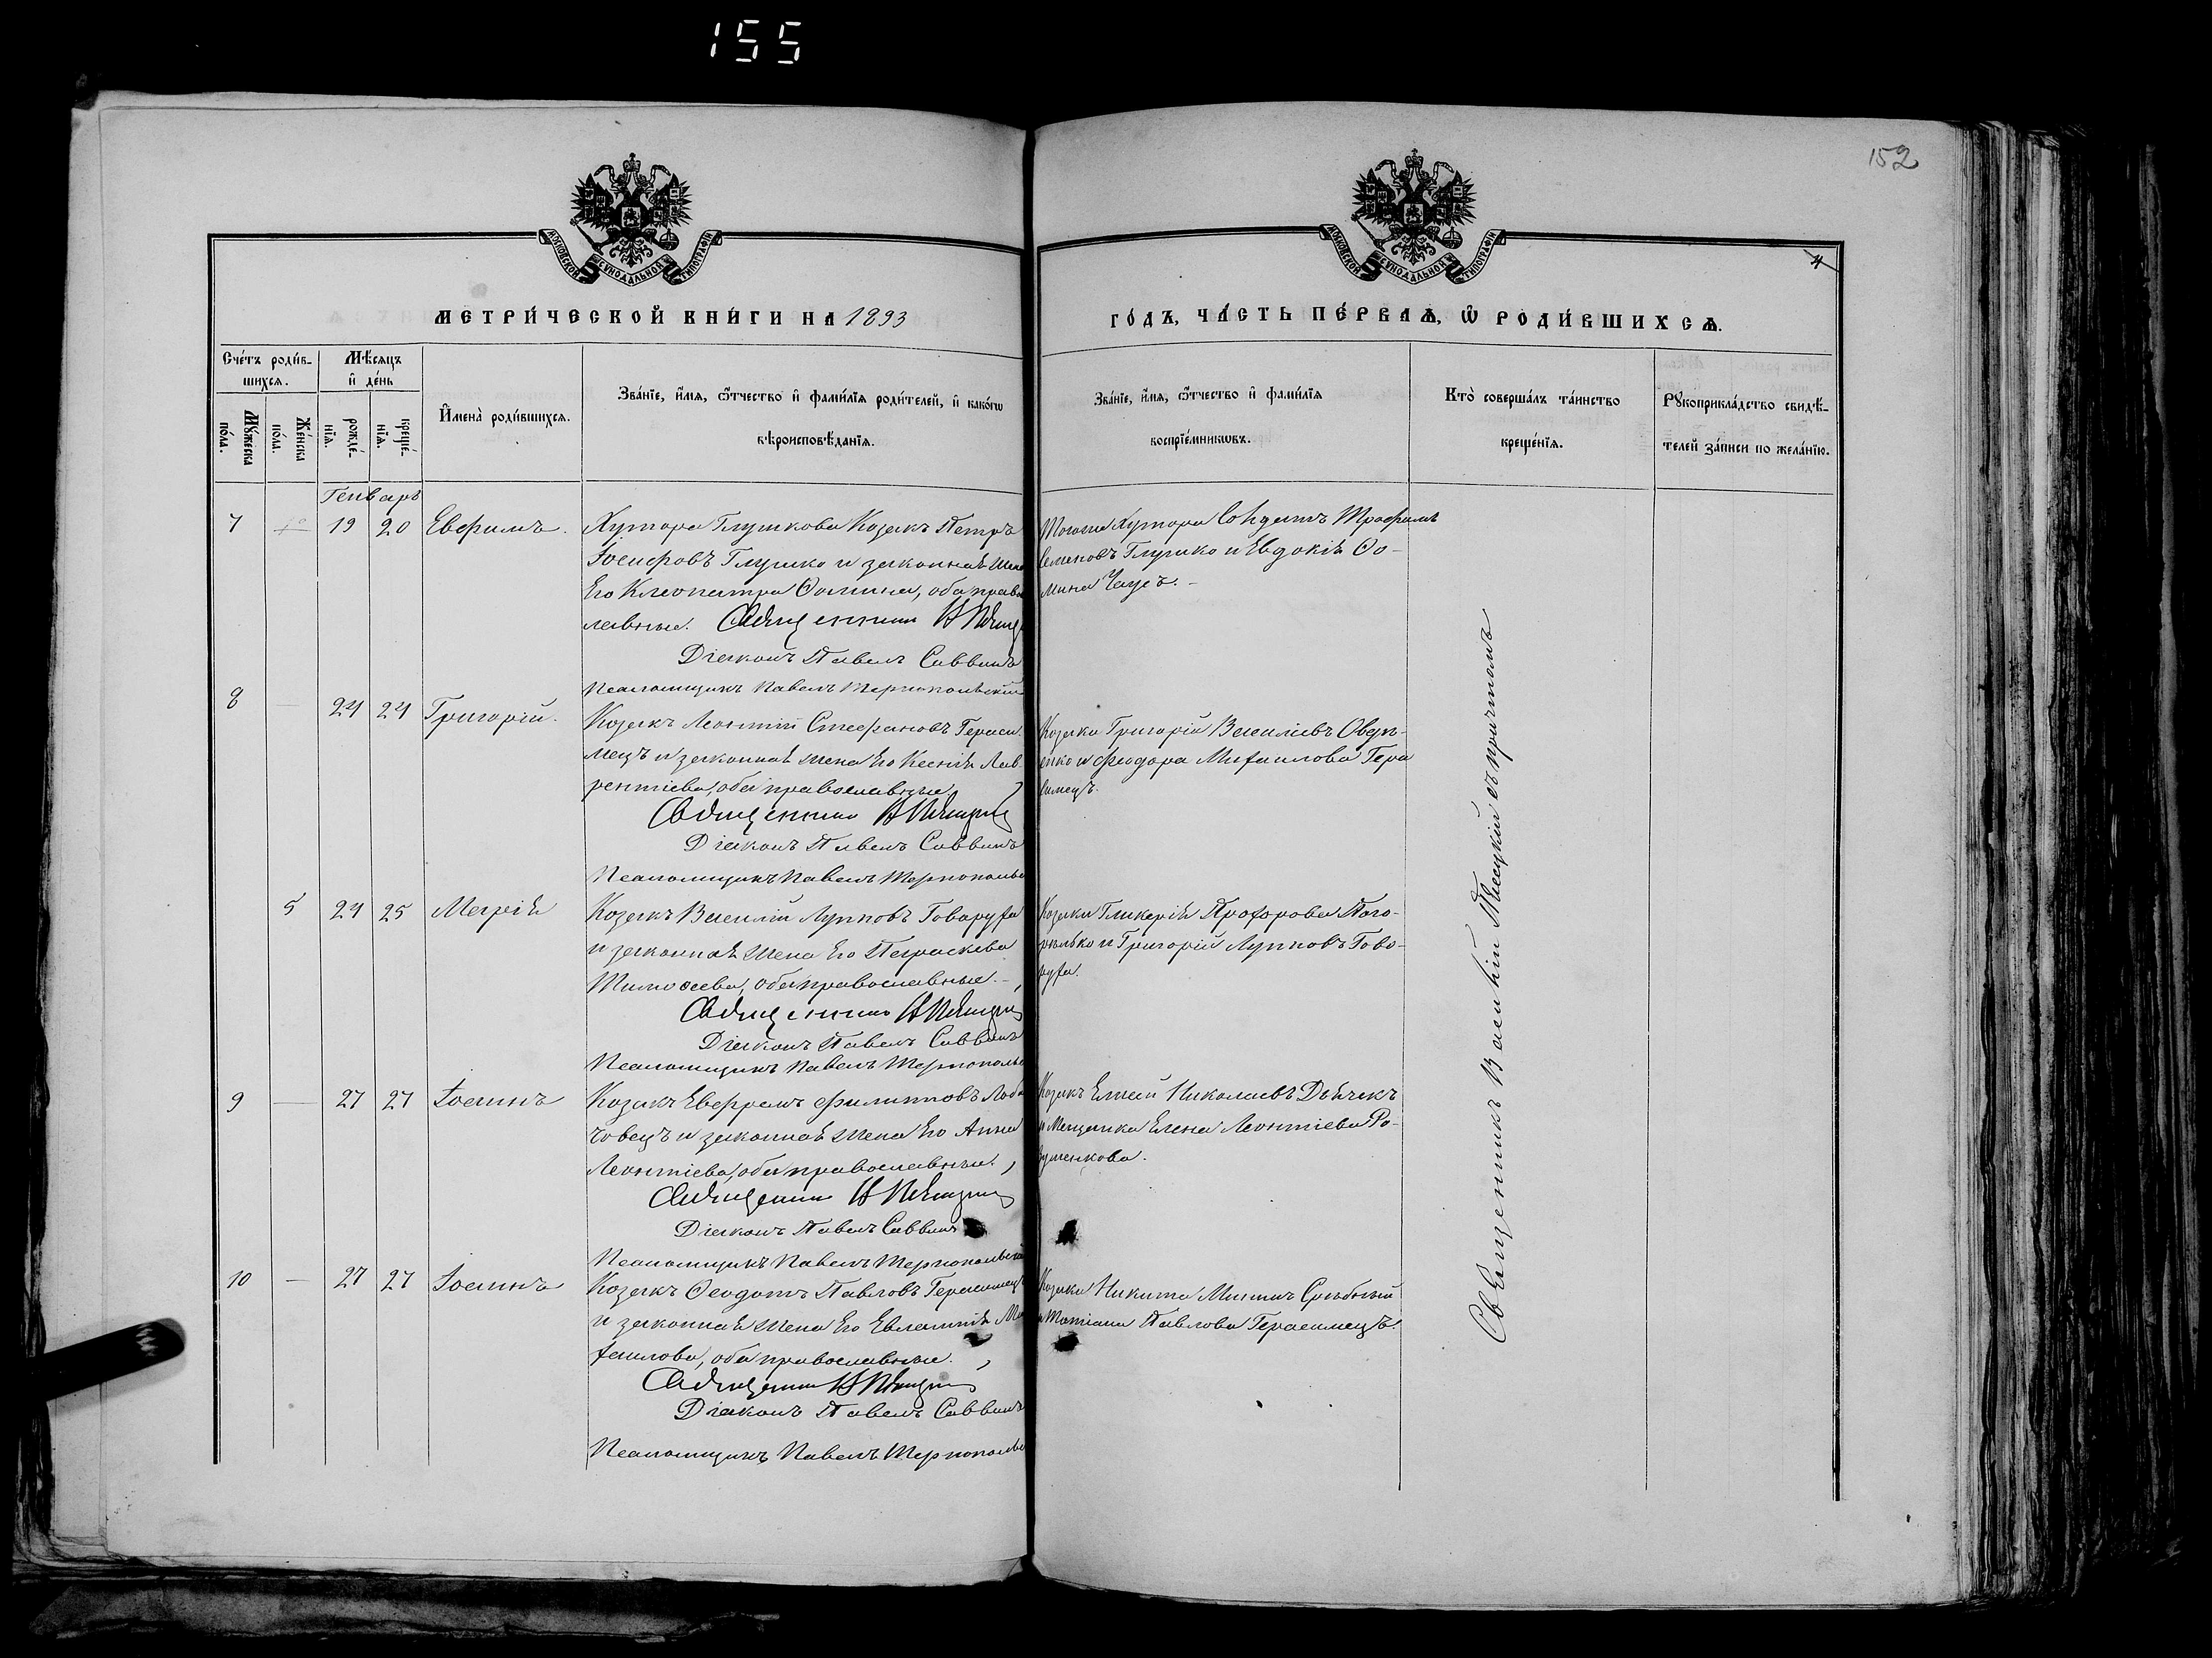 155
152
4
МОСКОВСКОЙ СѴНОДАЛЬНОЙ ТИПОГРАФІИ
МОСКОВСКОЙ СѴНОДАЛЬНОЙ ТИПОГРАФІИ
МЕТРИ́ЧЕСКОЙ КНИ́ГИ НА 1893
ГО́ДЪ, ЧА́СТЬ ПЕ́РВАѦ, Ѡ РОДИ́ВШИХСѦ.
Сче́тъ роди́в-
шихсѧ.
Мѣ́сяцъ
и҆ де́нь
Мꙋ́жеска
по́ла.
Же́нска
по́ла.
рожде́-
нїѧ.
креще́-
нїѧ.
И҆мена̀ роди́вшихсѧ.
Зва́нїе, и҆́мѧ, ѻ҆́тчество и҆ фами́лїѧ роди́телей, и҆ како́гѡ
вѣроисповѣ́данїѧ.
Зва́нїе, и҆́мѧ, ѻ҆́тчество и҆ фами́лїѧ
воспрїе́мникѡвъ.
Кто̀ соверша́лъ та́инство
креще́нїѧ.
Рꙋкоприкла́дство свидѣ́-
телей за́писи по жела́нїю.
Генварь
7 19 20 Евфимъ.
Хутора Глушкова Козакъ Петръ
Іосифовъ Глушко и законная жена
Его Клеопатра Ѳомина, оба право
славные. Священникъ
Діаконъ Павелъ Саввинъ
Псаломщикъ Павелъ Тернопольскій
Тогоже Хутора Солдатъ Трофимъ
Семеновъ Глушко и Евдокія Ѳо-
мина Чаусъ. -
8 — 24 24 Григорій.
Козакъ Леонтій Стефановъ Гераси
мецъ и законная жена Его Ксенія Лав
рентіева, оба православные,
Священникъ
Діаконъ Павелъ Саввинъ
Псаломщикъ Павелъ Тернополь
Козаки Григорій Василіевъ
и Феодора Михаилова Гера
симецъ.
5 24 25 Марія
Козакъ Василій Лупповъ Говоруха
и законная жена Его Параскева
Тимоѳеева, оба православные. -
Священникъ
Діаконъ Павелъ Саввинъ
Псаломщикъ Павелъ Тернополь
Козаки Гликерія Прохорова Пого-
рѣлько и Григорій Лупповъ Гово-
руха.
9 — 27 27 Іоаннъ
Козакъ Евфремъ Филипповъ Лоба
човецъ и законная жена Его Анна
Леонтіева, оба православные.
Священникъ
Діаконъ Павелъ Саввинъ
Псаломщикъ Павелъ Тернопольскій
Козакъ Елисей Николаевъ
и Мещанка Елена Леонтіева
10 — 27 27 Іоаннъ
Козакъ Ѳеодотъ Павловъ Герасимецъ
и законная жена Его Евлампія Ми
хаилова, оба православные.
Священникъ
Діаконъ Павелъ Саввинъ
Псаломщикъ Павелъ Тернополь
Козаки Никита Срыбный
и Татіана Павлова Герасимецъ.
Священникъ Василій съ причтомъ